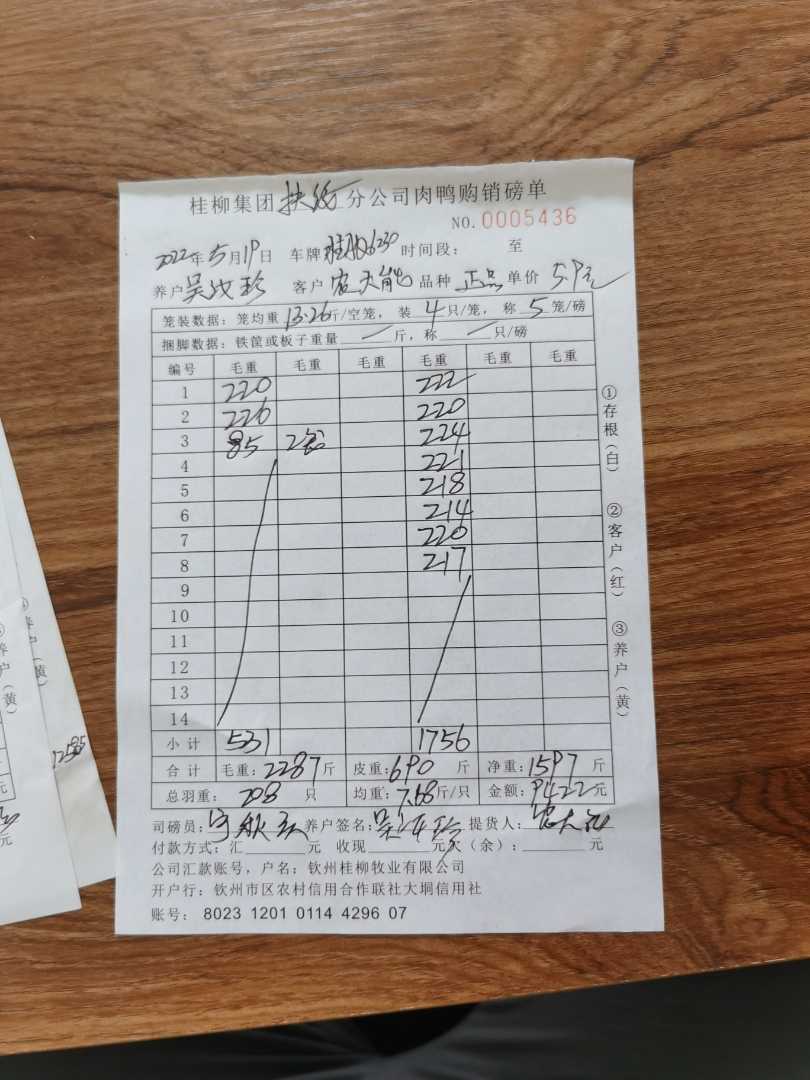 桂柳集团 扶绥 分公司肉鸭购销磅单
NO. 0005436
2022年5月19日 车牌 6230 时间段： 至
养户 吴 珍 客户 农大能 品种 正品 单价 5.9元
笼装数据：笼均重 13.26 斤/空笼，装 4 只/笼，称 5 笼/磅
捆脚数据：铁筐或板子重量 / 斤，称 / 只/磅
编号 毛重 毛重 毛重 毛重 毛重 毛重
1 220 222
2 226 220
3 85 2 224
4 221
5 218
6 214
7 220
8 217
9
10
11
12
13
14
小计 531 1756
合计 毛重：2287斤 皮重：690 斤 净重：1597斤
总羽重： 208 只 均重：7.68斤/只 金额：9422元
司磅员： 养户签名：吴 珍 提货人：农大能
付款方式：汇 元 收现 元欠（余）： 元
公司汇款账号，户名：钦州桂柳牧业有限公司
开户行：钦州市区农村信用合作联社大垌信用社
账号： 8023 1201 0114 4296 07
①存根（白） ②客户（红） ③养户（黄）
养户（黄）
12585
元